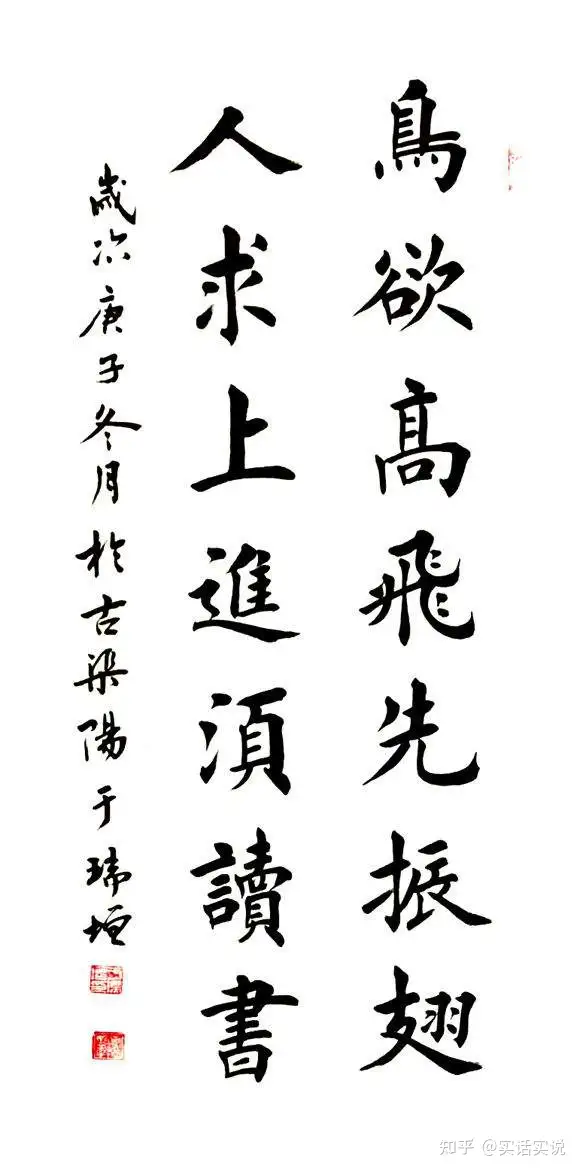 鳥欲高飛先振翅
人求上進須讀書
歲次庚子冬月於古梁陽于瑞垣
知乎 @实话实说